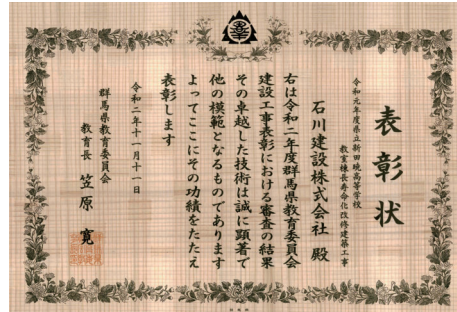 表彰状
令和元年度県立新田暁高等学校
教室棟長寿命化改修建築工事
石川建設株式会社 殿
右は令和二年度群馬県教育委員会
建設工事表彰における審査の結果
その卓越した技術は誠に顕著で
他の模範となるものであります
よってここにその功績をたたえ
表彰します
令和二年十一月十一日
群馬県教育委員会
教育長 笠原 寛